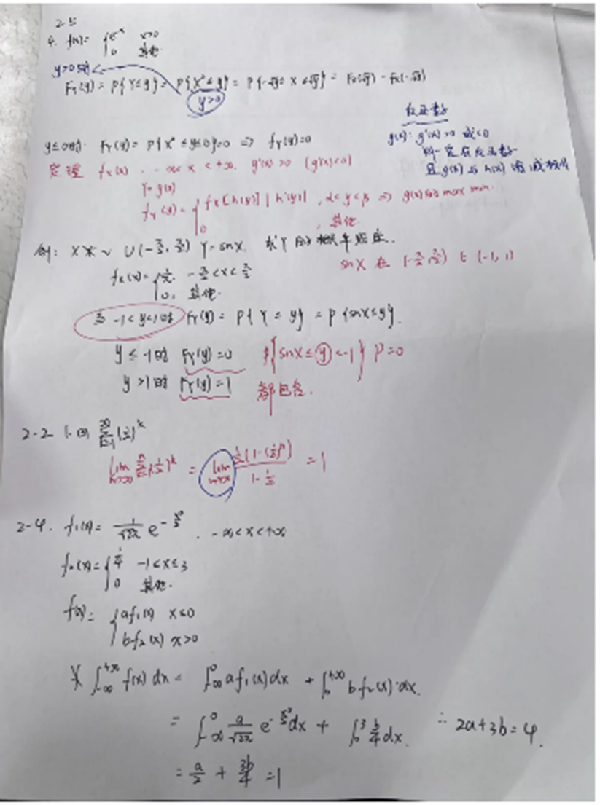 2-5
4. f(x)= { e^-x x>0
0 其他
y>0时
F_Y(y) = P{Y≤y} = P{X²≤y} = P{-√y ≤ X ≤ √y} = F_X(√y) - F_X(-√y)
y>0
反函数
y≤0时: F_Y(y) = P{X² ≤ y≤0}=0 => f_Y(y)=0
g(x): g'(x)>0 或<0
则一定有反函数
且g(x)与h(x)
定理 f_X(x) . -∞<x<+∞. g'(x)>0 (g'(x)<0)
Y=g(x)
f_Y(y) = { f_X[h(y)] |h'(y)| , α<y<β => g(x)的 max min
0 , 其他.
例: X ~ U(-π/2, π/2) Y=sinX. 求Y的概率密度.
f_X(x)= { 1/π, -π/2<x<π/2
0, 其他.
sinX 在 (-π/2, π/2) 上 (-1, 1)
当 -1<y<1时 F_Y(y) = P{Y ≤ y} = P{sinX≤y}.
y ≤ -1时 F_Y(y)=0 P{sinX≤ y <-1} P=0
y>1时 F_Y(y)=1 都包含.
2-2 1. (2) ∞Σk=1 (1/2)^k
lim n→∞ nΣk=1 (1/2)^k = lim n→∞ 1/2(1-(1/2)^n) / 1-1/2 = 1
2-4. f₁(x)= 1/√2π e^-x²/2 . -∞<x<+∞
f₂(x)= { 1/4 -1≤x≤3
0 其他.
f(x)= { af₁(x) x≤0
bf₂(x) x>0
∫-∞^+∞ f(x)dx = ∫-∞^0 af₁(x)dx + ∫0^+∞ bf₂(x)dx.
= ∫-∞^0 a/√2π e^-x²/2 dx + ∫0^3 b/4 dx. ∴ 2a+3b=4.
= a/2 + 3b/4 =1